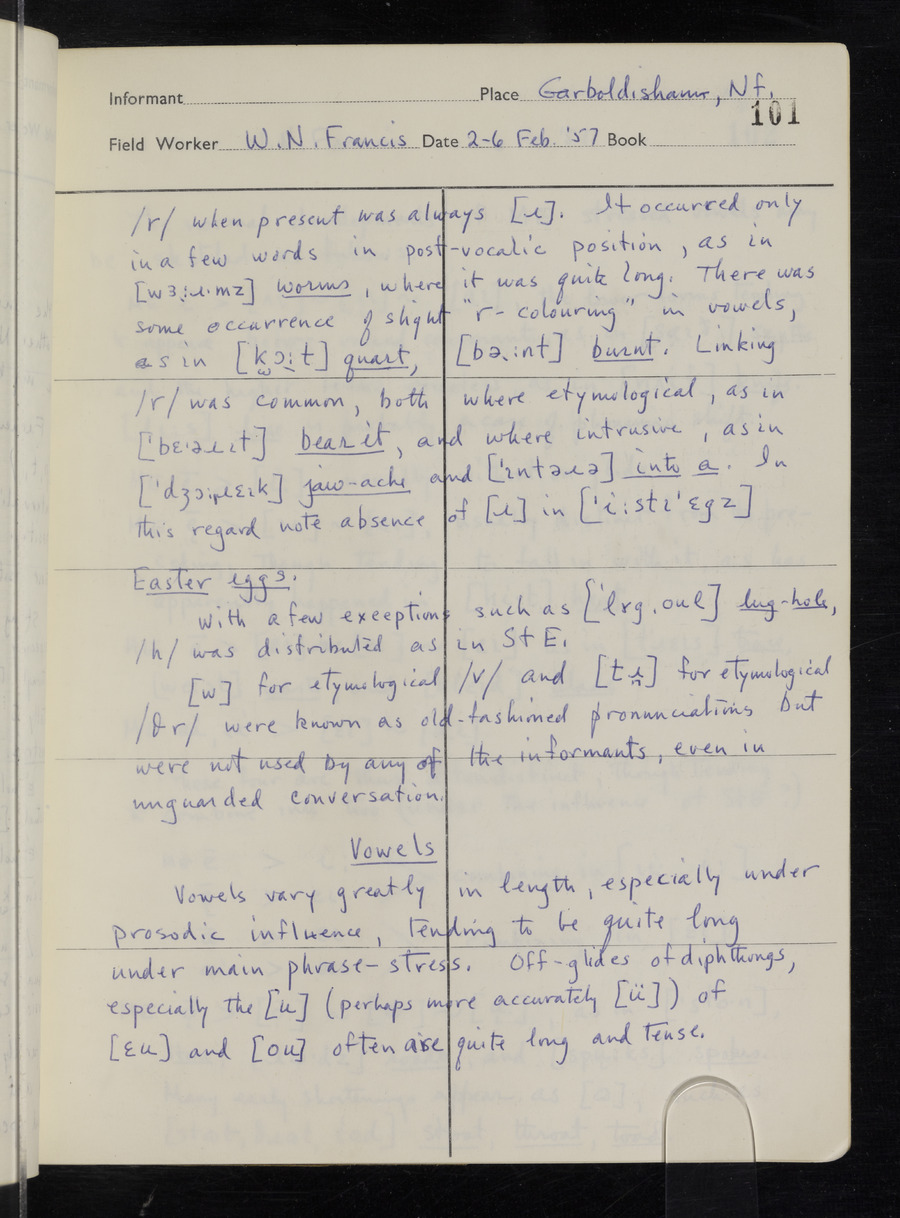 Informant Place Garboldisham, Nf.
101
Field Worker W.N. Francis Date 2-6 Feb. '57 Book
/r/ when present was always [ɹ]. It occurred only
in a few words in post-vocalic position, as in
[wɜ:ɹ·mz] worms, where it was quite long. There was
some occurrence of slight "r-colouring" in vowels,
as in quart, burnt. Linking
/r/ was common, both where etymological, as in
['bɛ·əɹɪt] bear it, and where intrusive, as in
jaw-ache and ['ɪntəɹə] into a. In
this regard note absence of [ɹ] in ['i:stɪ'ɛgz]
Easter eggs.
with a few exceptions such as lug-hole,
/h/ was distributed as in St E.
[w] for etymological /v/ and for etymological
/θr/ were known as old-fashioned pronunciations but
were not used by any of the informants, even in
unguarded conversation.
Vowels
Vowels vary greatly in length, especially under
prosodic influence, tending to be quite long
under main phrase-stress. Off-glides of diphthongs,
especially the [u] (perhaps more accurately [ü]) of
[ɛu] and [ou] often are quite long and tense.